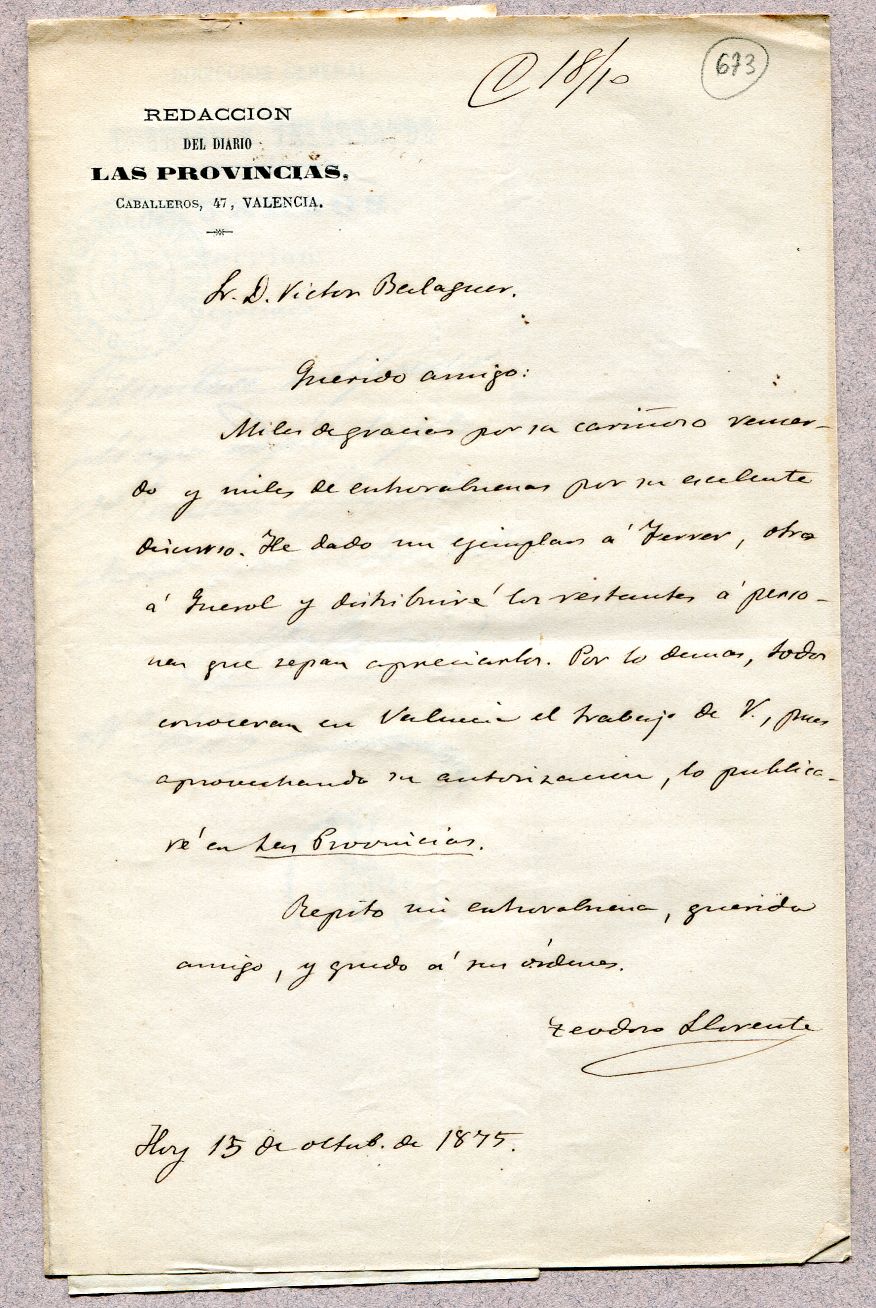 18/10
673
REDACCION
DEL DIARIO
LAS PROVINCIAS,
CABALLEROS, 47, VALENCIA.
Sr. D. Victor Balaguer.
Querido amigo:
Miles de gracias por su cariñoso recuer-
do y miles de enhorabuenas por su excelente
discurso. He dado un ejemplar á Ferrer, otro
á Querol y distribuiré los restantes á perso-
nas que sepan apreciarlos. Por lo demas, todos
conoceran en Valencia el trabajo de V., pues
aprovechando su autorizacion, lo publica-
ré en Las Provincias.
Repito mi enhorabuena, querido
amigo, y quedo á sus órdenes.
Teodoro Llorente
Hoy 15 de octub. de 1875.